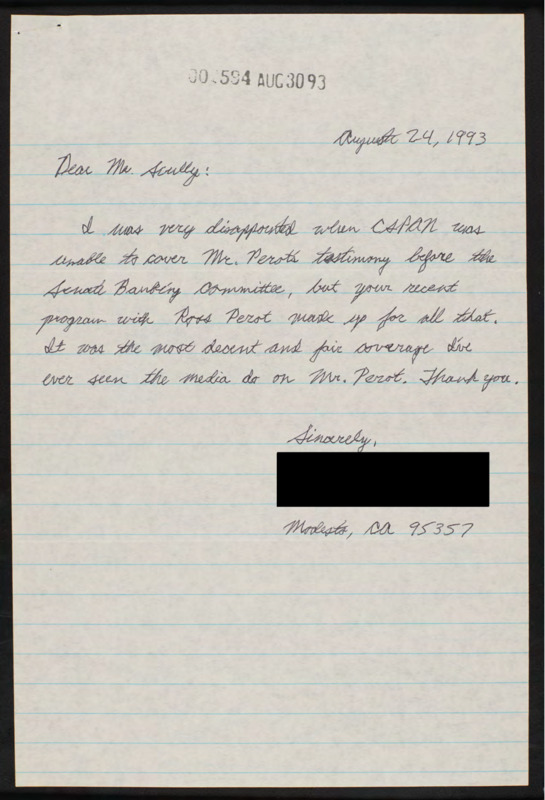 00.594 AUG3093
August 24, 1993
Dear Mr. Scully:
I was very disappointed when CSPAN was
unable to cover Mr. Perot's testimony before the
Senate Banking Committee, but your recent
program with Ross Perot made up for all that.
It was the most decent and fair coverage I've
ever seen the media do on Mr. Perot. Thank you.
Sincerely,
Modesto, CA 95357